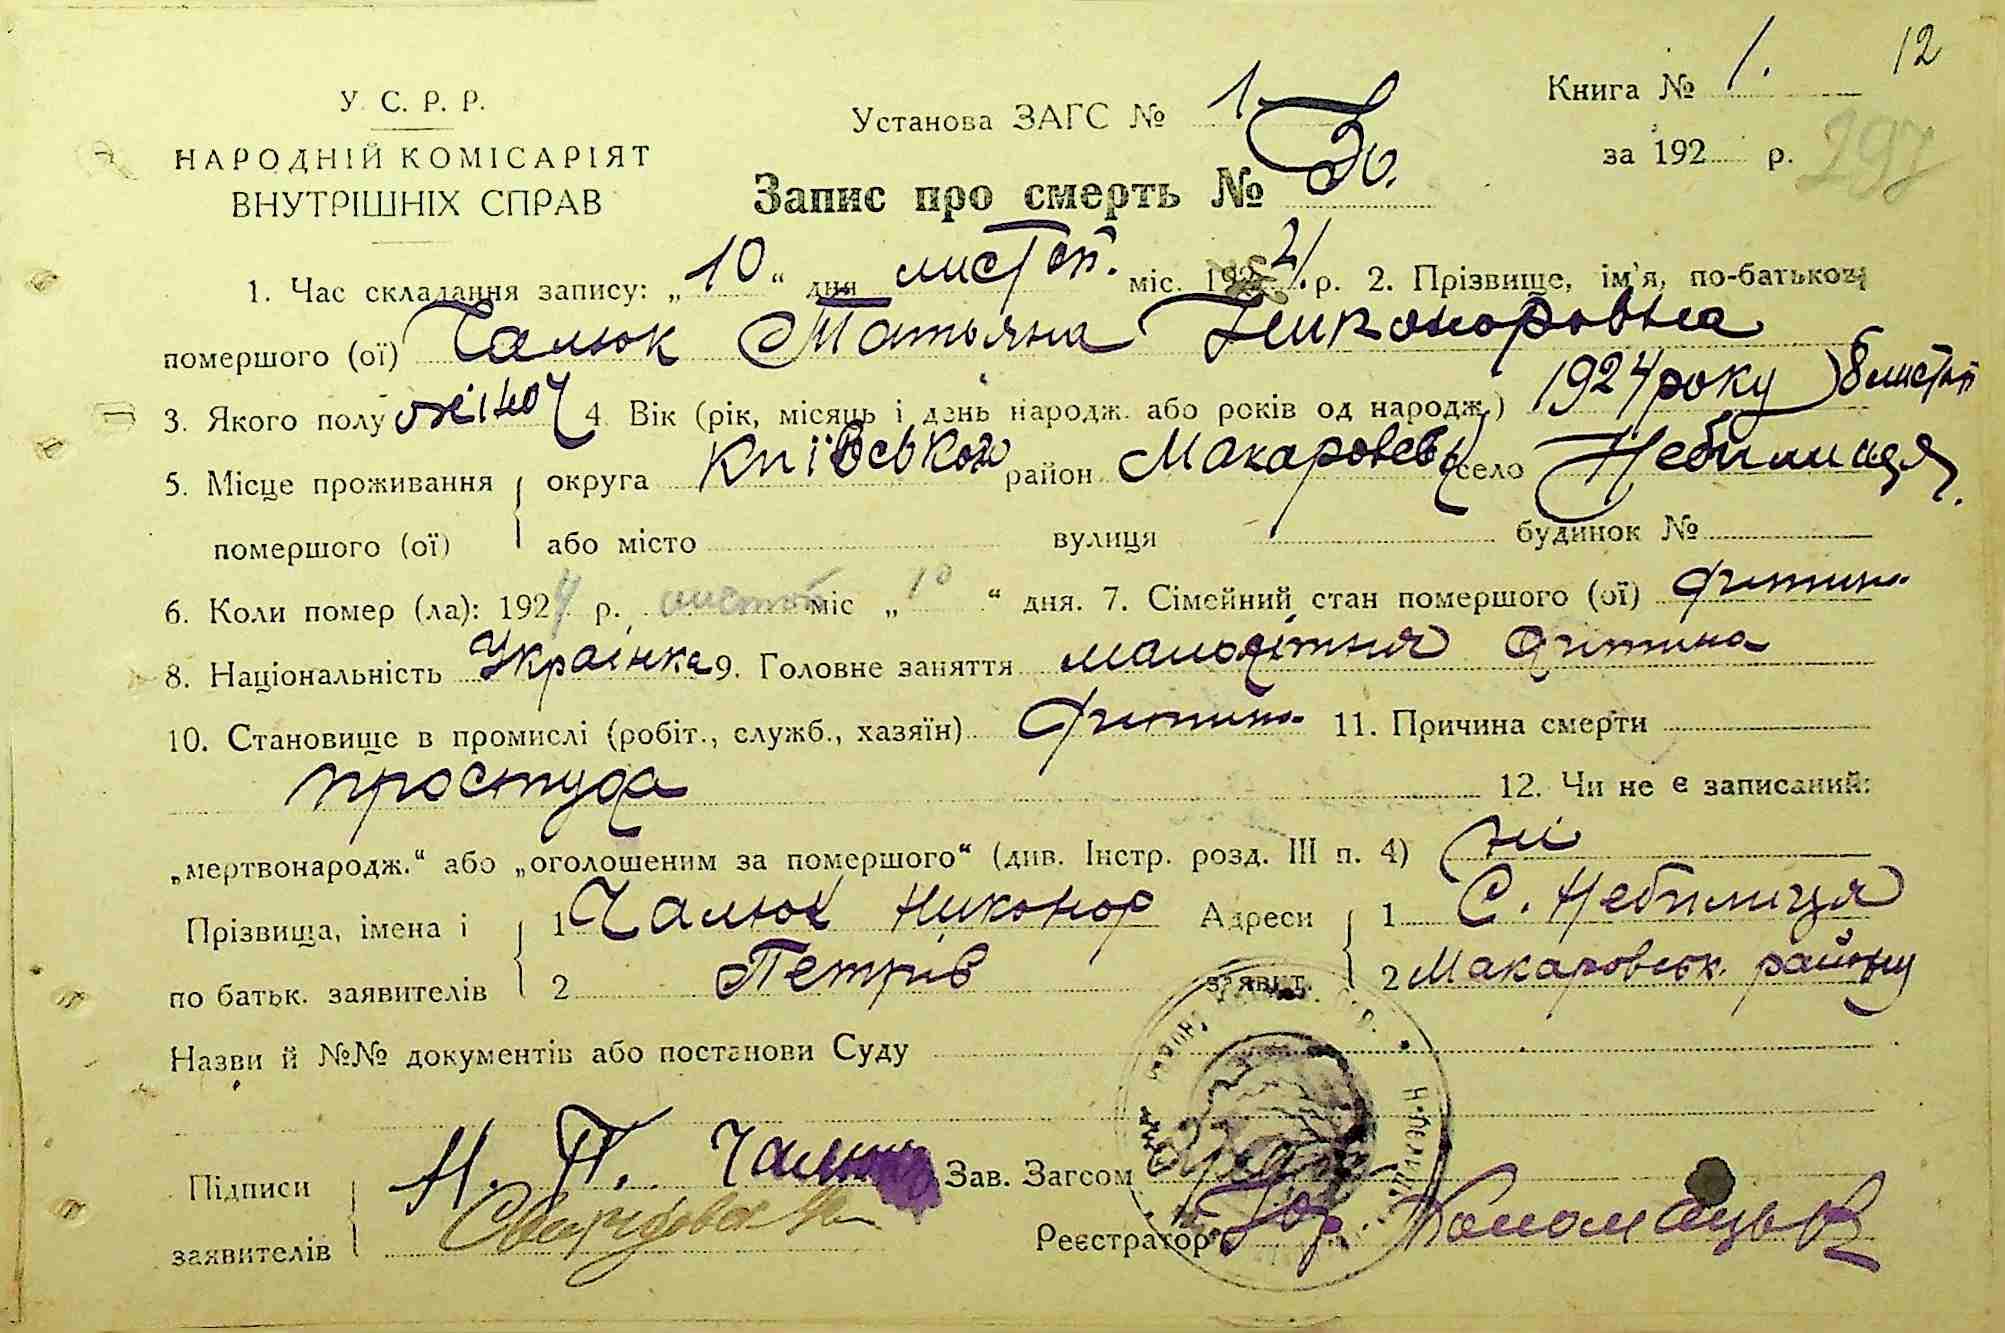 У. С. Р. Р.
НАРОДНІЙ КОМІСАРІЯТ
ВНУТРІШНІХ СПРАВ
Установа ЗАГС № 1
Запис про смерть № 30.
Книга № 1. 12
за 192 р. 297
1. Час складання запису: „10“ дня листоп. міс. 1924 р. 2. Прізвище, ім'я, по-батькові
помершого (ої) Чалюк Татьяна Никоноровна
3. Якого полу жіноч 4. Вік (рік, місяць і день народж. або років од народж.) 1924 року 8 листоп
5. Місце проживання помершого (ої) округа Київськой район Макаровськ село Небилиця.
або місто вулиця будинок №
6. Коли помер (ла): 1924 р. листоб міс „10“ дня. 7. Сімейний стан помершого (ої) дитин.
8. Національність Українка 9. Головне заняття малолітня дитина
10. Становище в промислі (робіт., служб., хазяїн) дитин. 11. Причина смерти
простуда 12. Чи не є записаний:
„мертвонародж.“ або „оголошеним за помершого“ (див. Інстр. розд. III п. 4) ні
Прізвища, імена і 1 Чалюк Никонор Адреси 1 С. Небилиця
по батьк. заявителів 2 Петрів заявит. 2 Макаровськ. району
Назви й №№ документів або постанови Суду
Підписи Н. П. Чалюк Зав. Загсом
заявителів Реєстратор